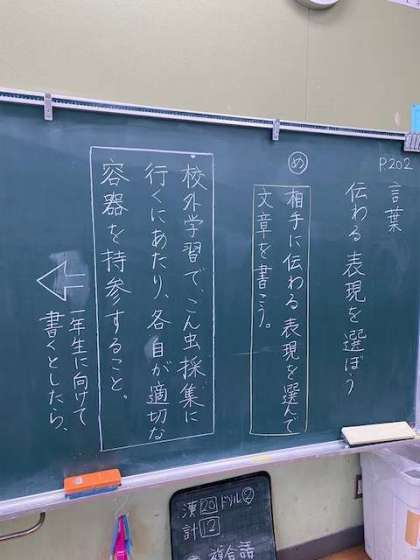 P202
言葉
伝わる表現を選ぼう
め
相手に伝わる表現を選んで
文章を書こう。
校外学習で、こん虫採集に
行くにあたり、各自が適切な
容器を持参すること。
一年生に向けて
書くとしたら、
漢20ドリル②
計12
複合語